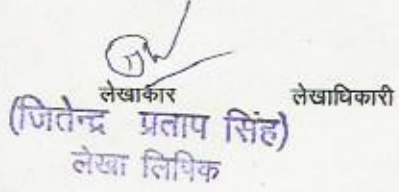 लेखाकार लेखाधिकारी
(जितेन्द्र प्रताप सिंह)
लेखा लिपिक